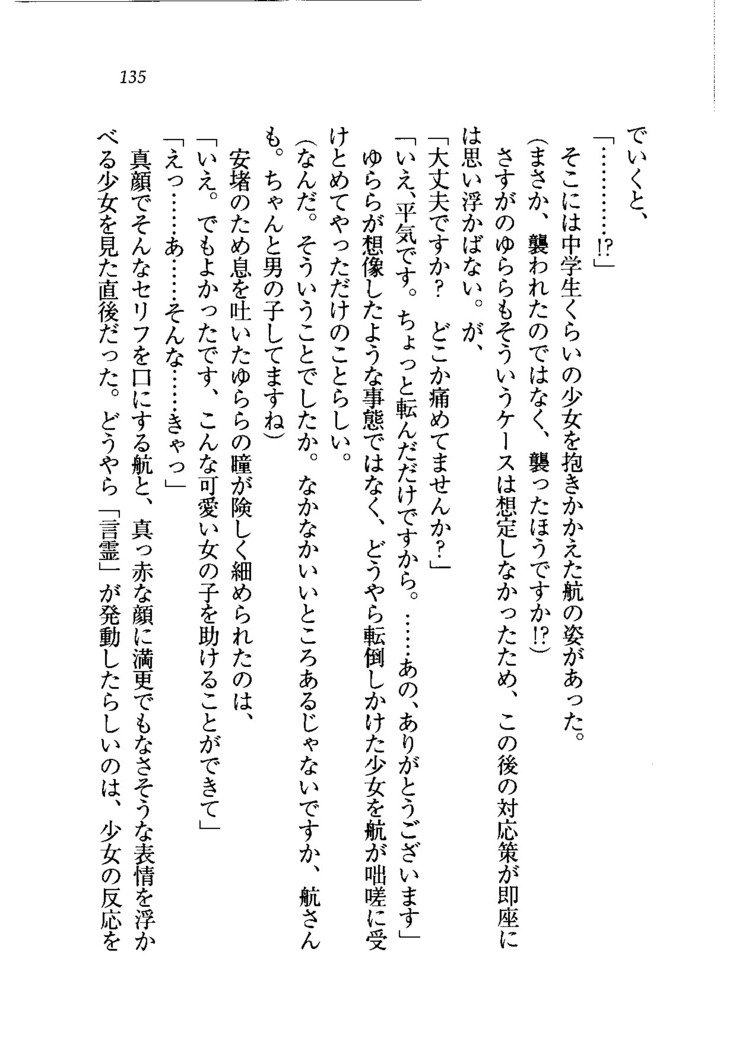 135
でいくと、
「…………!?」
　そこには中学生くらいの少女を抱きかかえた航の姿があった。
（まさか、襲われたのではなく、襲ったほうですか!?）
　さすがのゆららもそういうケースは想定しなかったため、この後の対応策が即座に
は思い浮かばない。が、
「大丈夫ですか？　どこか痛めてませんか？」
「いえ、平気です。ちょっと転んだだけですから。……あの、ありがとうございます」
　ゆららが想像したような事態ではなく、どうやら転倒しかけた少女を航が咄嗟に受
けとめてやっただけのことらしい。
（なんだ。そういうことでしたか。なかなかいいところあるじゃないですか、航さん
も。ちゃんと男の子してますね）
　安堵のため息を吐いたゆららの瞳が険しく細められたのは、
「いえ。でもよかったです、こんな可愛い女の子を助けることができて」
「えっ……あ……そんな……きゃっ」
　真顔でそんなセリフを口にする航と、真っ赤な顔に満更でもなさそうな表情を浮か
べる少女を見た直後だった。どうやら「言霊」が発動したらしいのは、少女の反応を